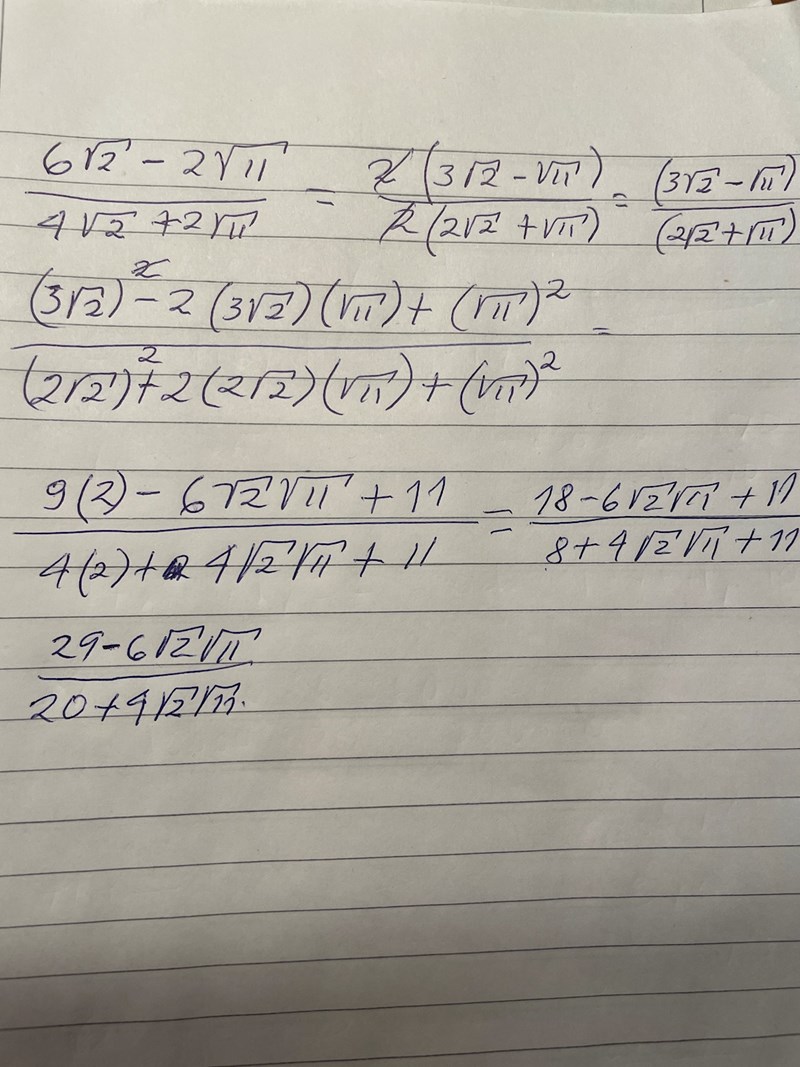 (6√2 - 2√11)/(4√2 + 2√11) = 2(3√2 - √11)/2(2√2 + √11) = (3√2 - √11)/(2√2 + √11)
((3√2)² - 2(3√2)(√11) + (√11)²)/((2√2)² + 2(2√2)(√11) + (√11)²) =
(9(2) - 6√2√11 + 11)/(4(2) + 4√2√11 + 11) = (18 - 6√2√11 + 11)/(8 + 4√2√11 + 11)
(29 - 6√2√11)/(20 + 4√2√11.)